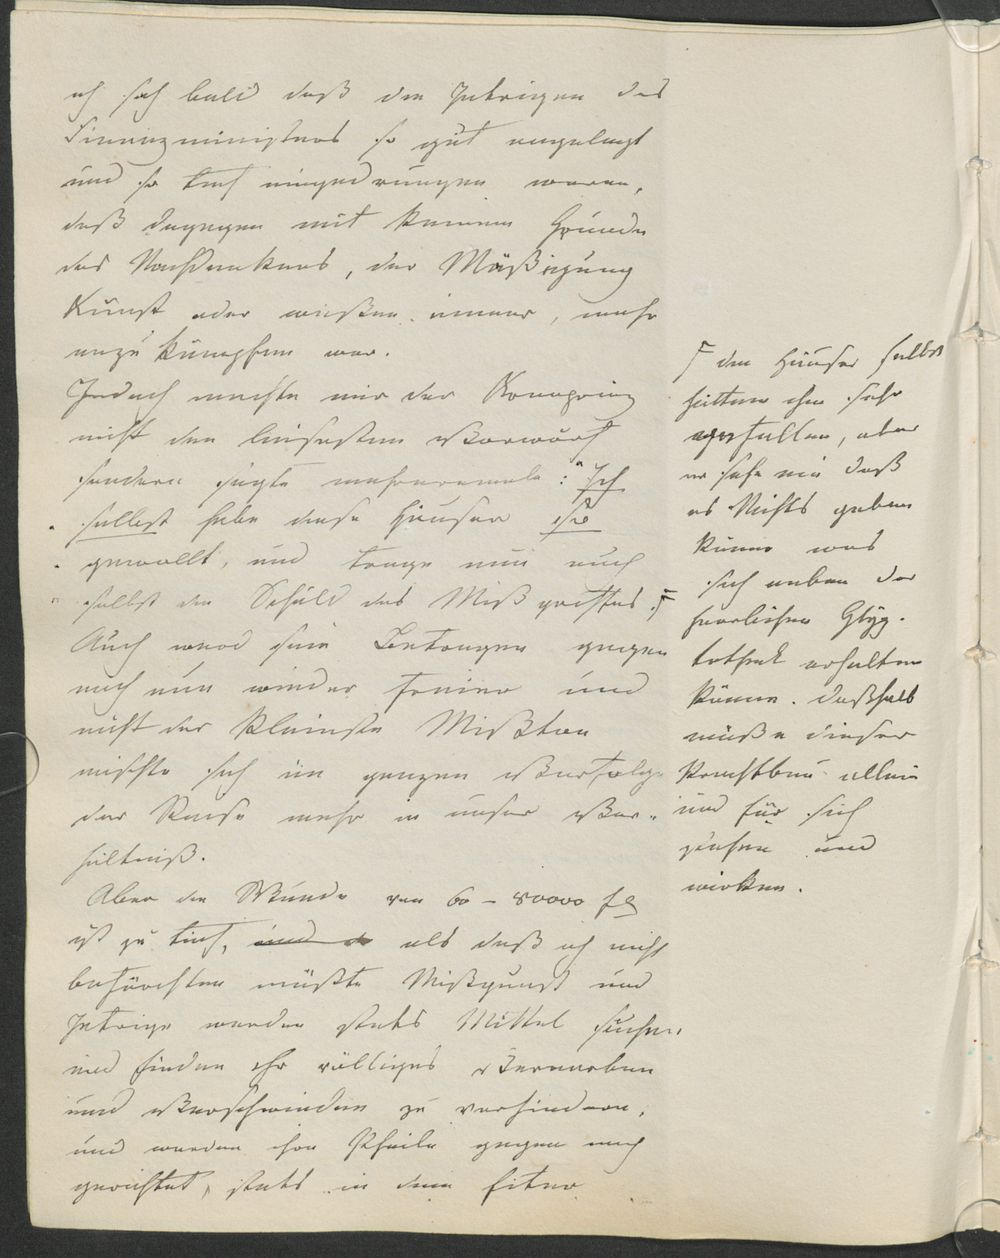 ich sah bald daß die Intrigen des
Finanzministers so gut angelegt
und so tief eingedrungen waren,
daß dagegen mit keinem Grunde
des Nachdenkens, der Mäßigung
Kunst oder
anzukämpfen war.
Jedoch machte mir der Kronprinz
nicht den leisesten Vorwurf
sondern sagte mehreremale: "Ich
" selbst habe diese Häuser so
" gewollt, und trage nun auch
" selbst die Schuld des Mißgriffes."
Auch ward sein Betragen gegen
mich nun wieder und
nicht der kleinste Mißton
mischte sich im ganzen Verfolge
der Reise mehr in unser Ver-
hältniß.
Aber die Wunde von 60 – 80000 fl
ist zu tief, als daß ich nicht
befürchten müßte Mißgunst und
Intrige werden stets Mittel suchen
und finden ihr völliges Vernarben
und Verschwinden zu verhindern,
und werden ihre Pfeile gegen mich
gerichtet, stets in dem Eiter
die Häuser selbst
hätten ihm sehr
gefallen, aber
er sehe ein daß
es Nichts geben
könne was
sich neben der
herrlichen Glyp-
tothek erhalten
könne. deßhalb
müße dieser
Prachtbau allein
und für sich
stehen und
wirken.